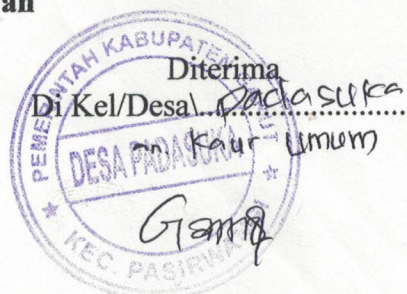 an
Diterima
Di Kel/Desa\ Padasuka
an Kaur Umum
PEMERINTAH KABUPATEN
DESA PADASUKA
KEC.